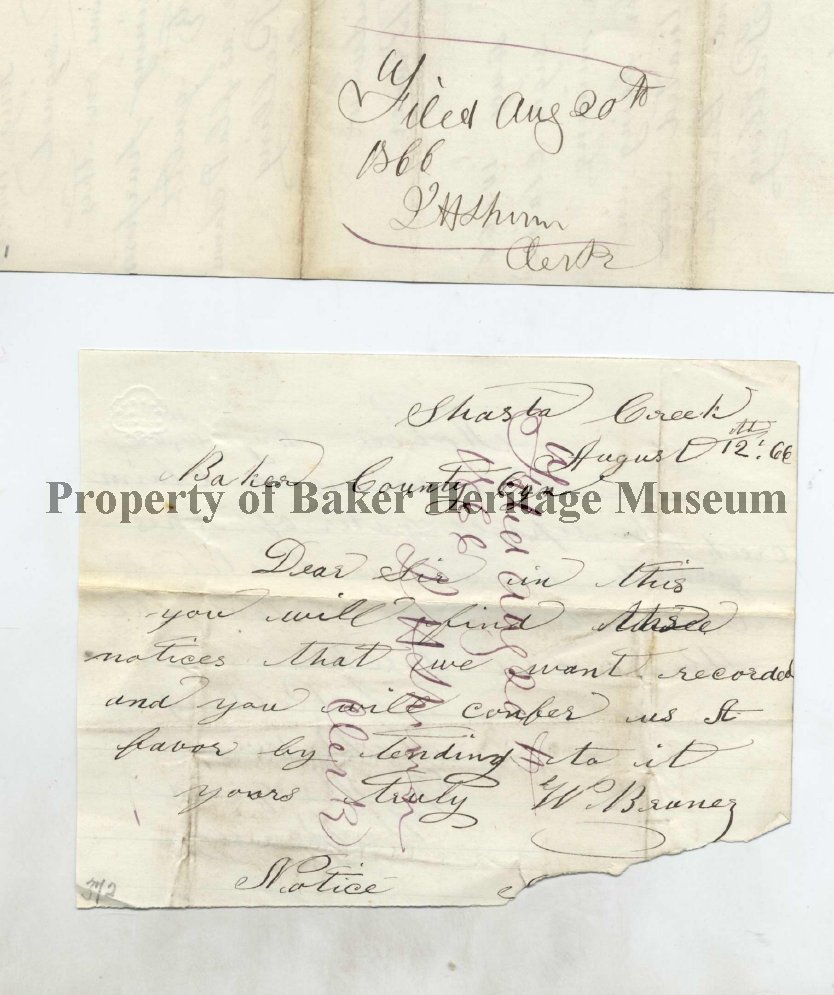 Filed Aug 20th
1866
J H Shinn
Clerk
Shasta Creek
August 12th '66
Baker County Ogn
Property of Baker Heritage Museum
Dear Sir in this
you will find these
notices that we want recorded
and you will confer us
favor by tending to it
yours truly W Bruner
Notice
Filed Aug 20th
1866
J H Shinn
Clerk